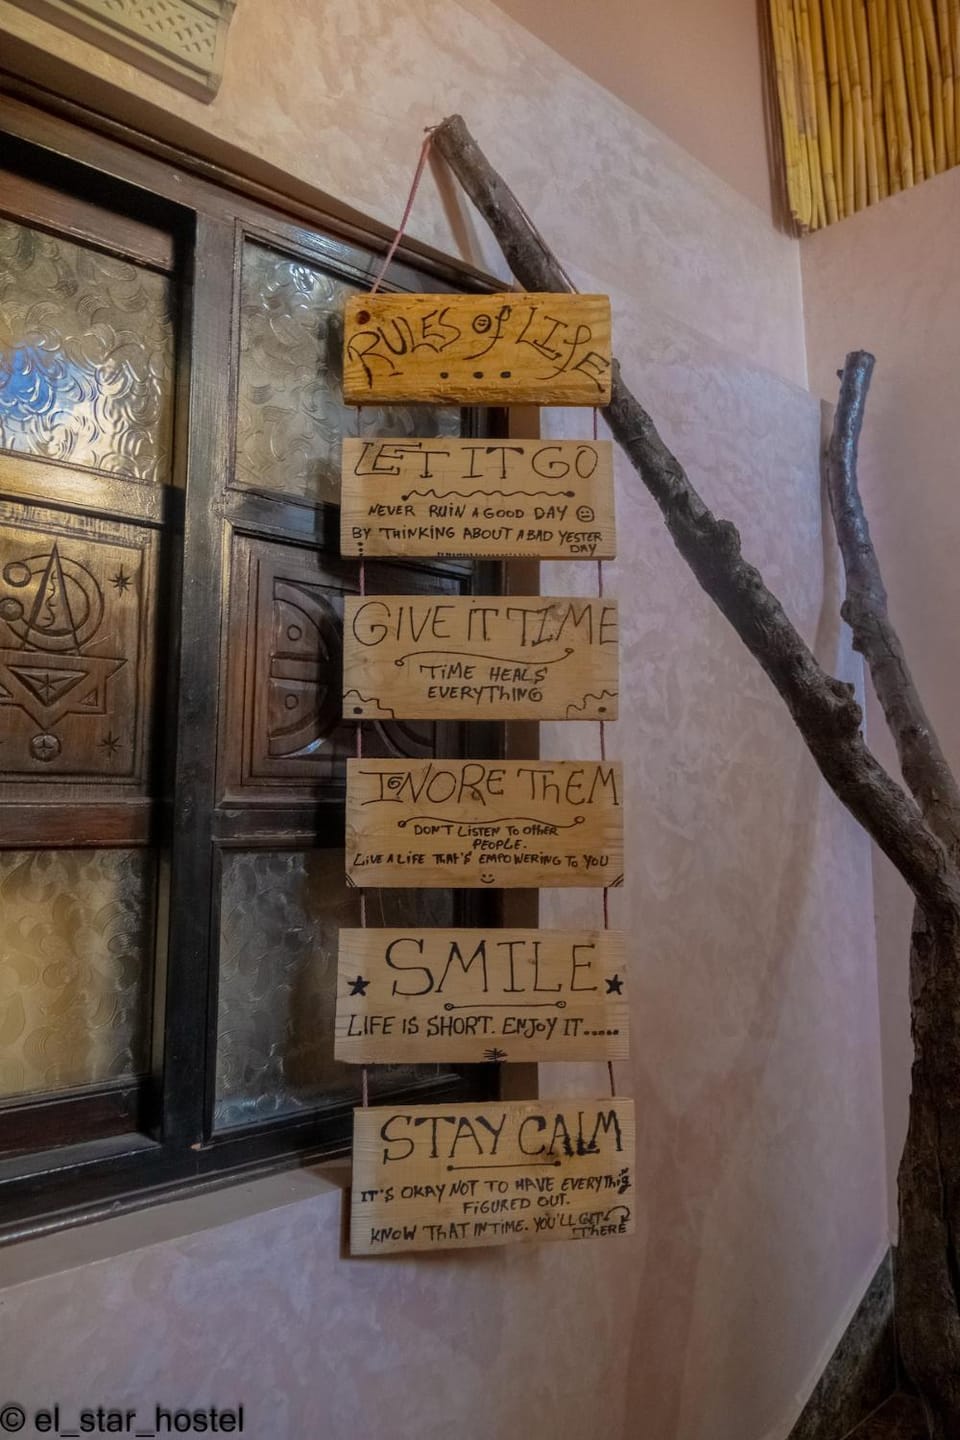 RULES of LIfE
....
LET IT GO
NEVER RUIN A GOOD DAY ☺
BY THINKING ABOUT A BAD YESTER
DAY
GIVE iT TIME
TiME HEALS
EVERYThING
IGNORE ThEM
DON'T LISTEN To OthER
PEOPLE.
LivE A LiFE ThAT'S EMPOWERING To YOU
☺
SMILE
LIFE IS SHORT. ENJOY IT.....
STAY CALM
IT'S OKAY NOT TO HAVE EVERYThig
FiGURED OUT.
KNOW THAT IN TIME. YOU'LL GET
ThERE
© el_star_hostel